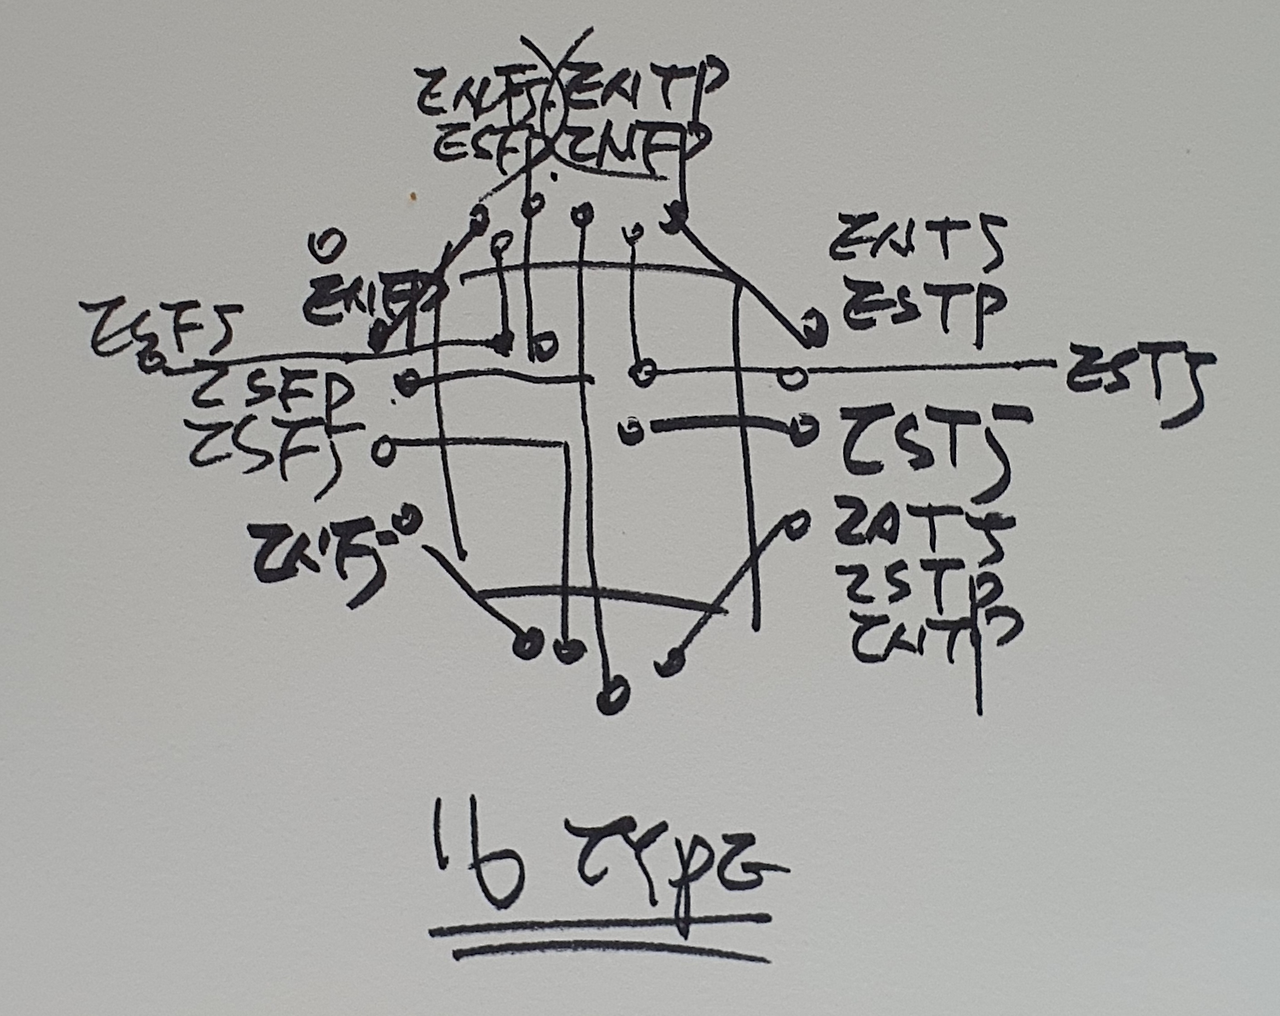 ENFJ ENTP
ESFP ENFP
ENTJ
ESTP
INFP
ESFJ
ESTJ
ISFP
ISFJ
ISTJ
INFJ
INTJ
ISTP
INTP
16 TYPE